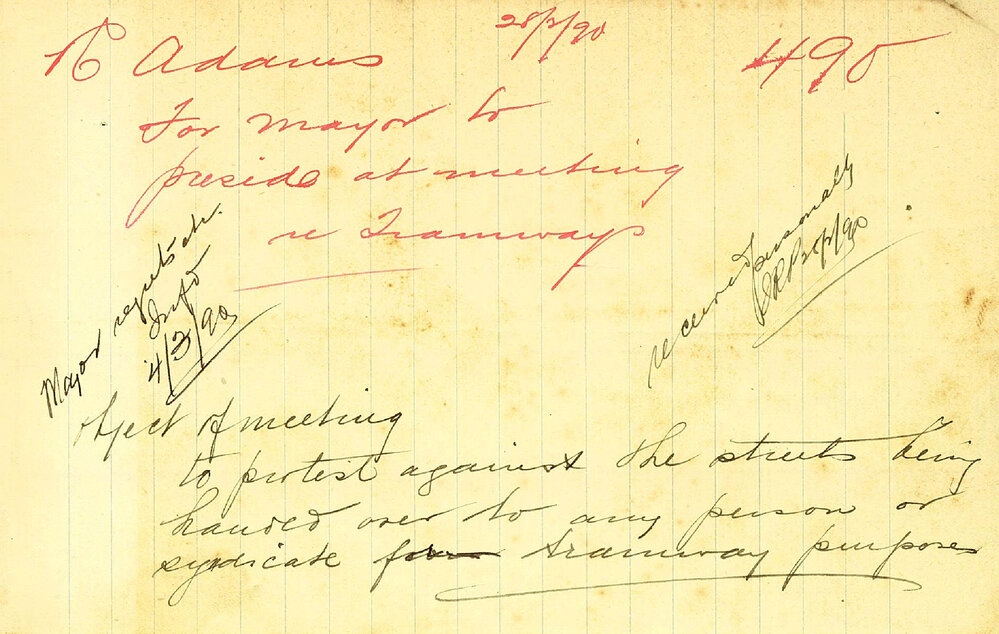 28/2/90
R Adams
490
For Mayor to
preside at meeting
re Tramways
Mayor regrets etc.
Infd
4/3/90
received personally
28/2/90
object of meeting
to protest against the streets being
handed over to any person or
syndicate for tramway purposes